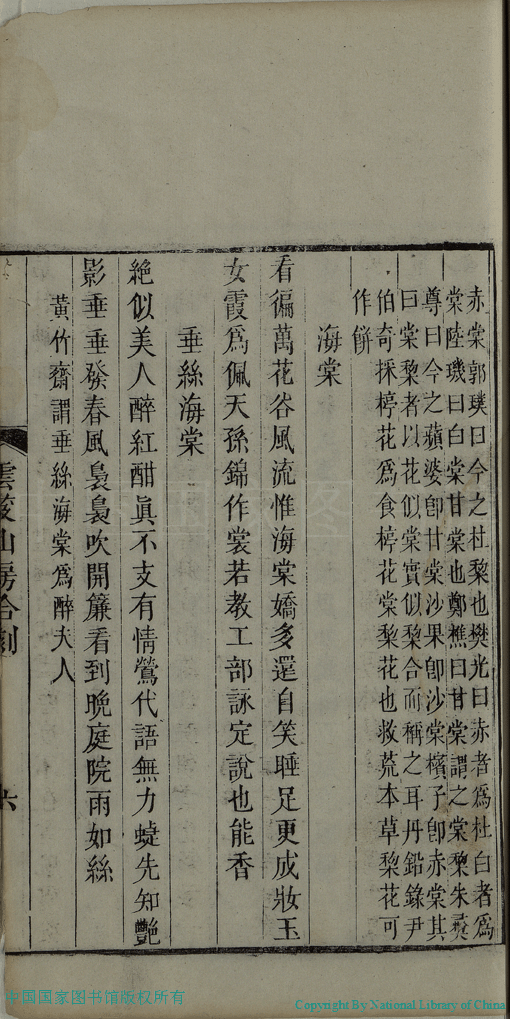 赤棠郭璞曰今之杜棃也樊光曰赤者爲杜白者爲
棠陸璣曰白棠甘棠也鄭樵曰甘棠謂之棠棃朱
尊曰今之蘋婆卽甘棠沙果卽沙棠檳子卽赤棠其
曰棠棃者以花似棠實似棃合而稱之耳丹鉛錄尹
伯奇採楟花爲食楟花棠棃花也救荒本草棃花可
作餅
海棠
看徧萬花谷風流惟海棠嬌多還自笑睡足更成妝玉
女霞爲佩天孫錦作裳若教工部詠定說也能香
垂絲海棠
絕似美人醉紅酣眞不支有情鶯代語無力蜨先知艷
影垂垂發春風裊裊吹開簾看到晩庭院雨如絲
黃竹齋謂垂絲海棠爲醉夫人
山房合刻
六
中国国家图书馆版权所有
Copyright By National Library of China